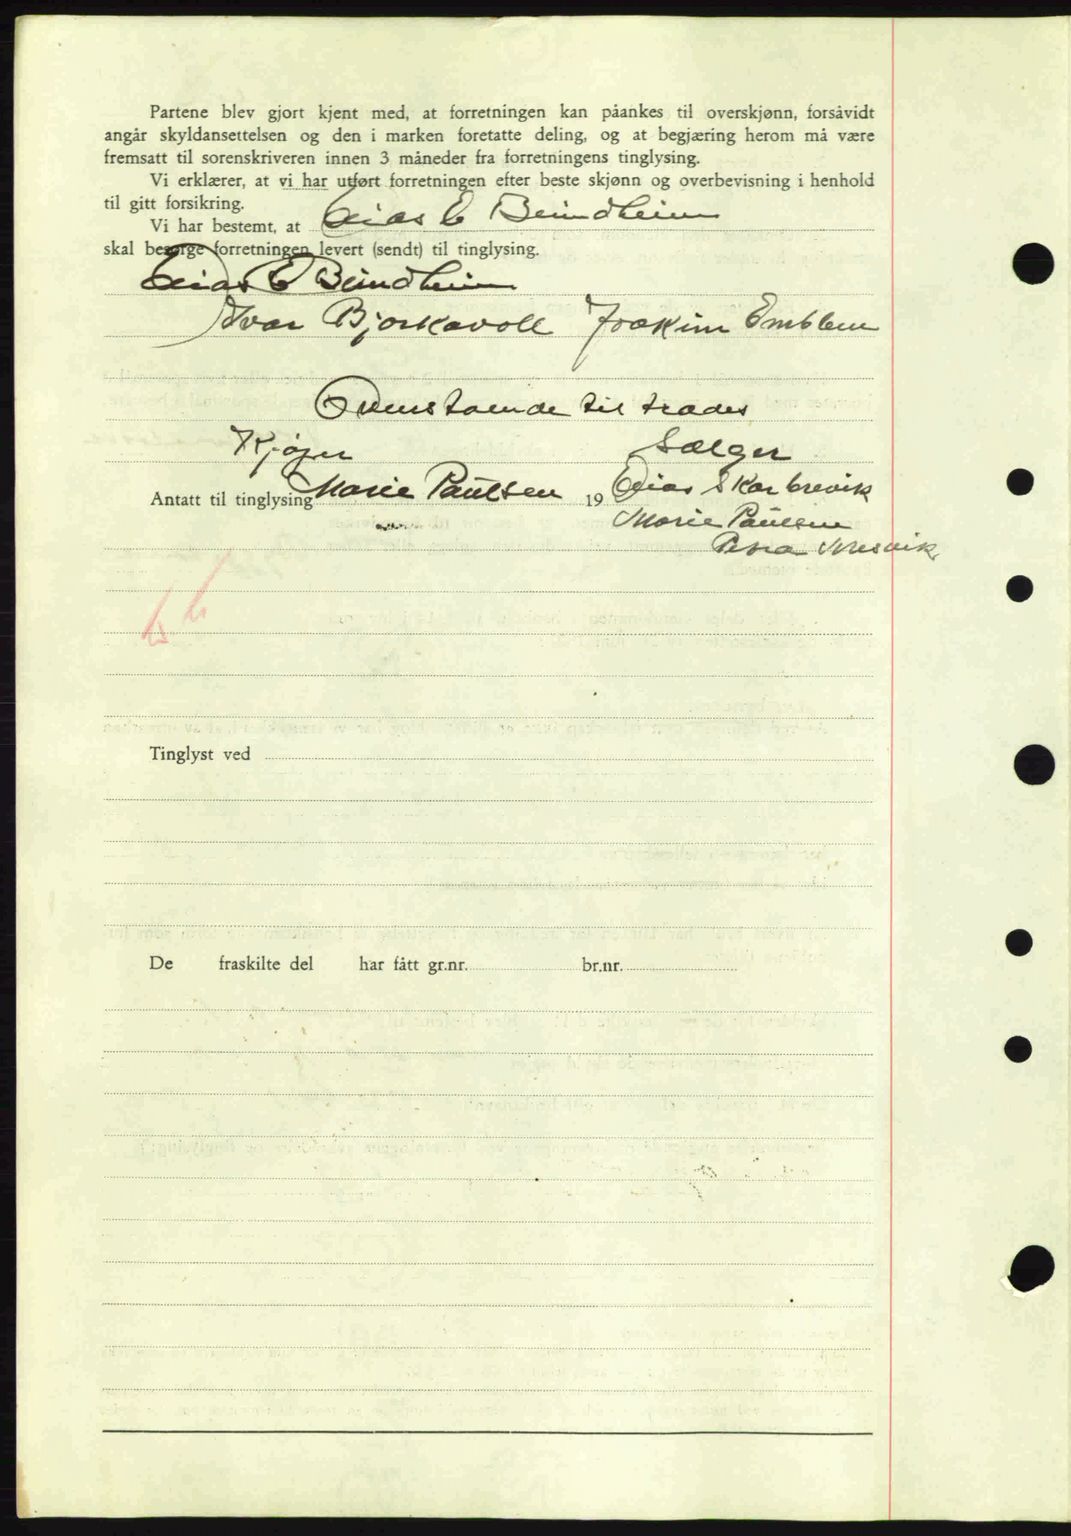 Partene blev gjort kjent med, at forretningen kan påankes til overskjønn, forsåvidt
angår skyldansettelsen og den i marken foretatte deling, og at begjæring herom må være
fremsatt til sorenskriveren innen 3 måneder fra forretningens tinglysing.
Vi erklærer, at vi har utført forretningen efter beste skjønn og overbevisning i henhold
til gitt forsikring.
Vi har bestemt, at Elias E Beindheim
skal besørge forretningen levert (sendt) til tinglysing.
Elias E Beindheim
Ivar Bjørkavoll Joakim Emblem
Ovenstaende til trædes
Kjøper Sælger
Antatt til tinglysing Marie Paulsen 19 Elias Skarbrevik
Marie Paulsen
Petra
Tinglyst ved
De fraskilte del har fått gr.nr. br.nr.